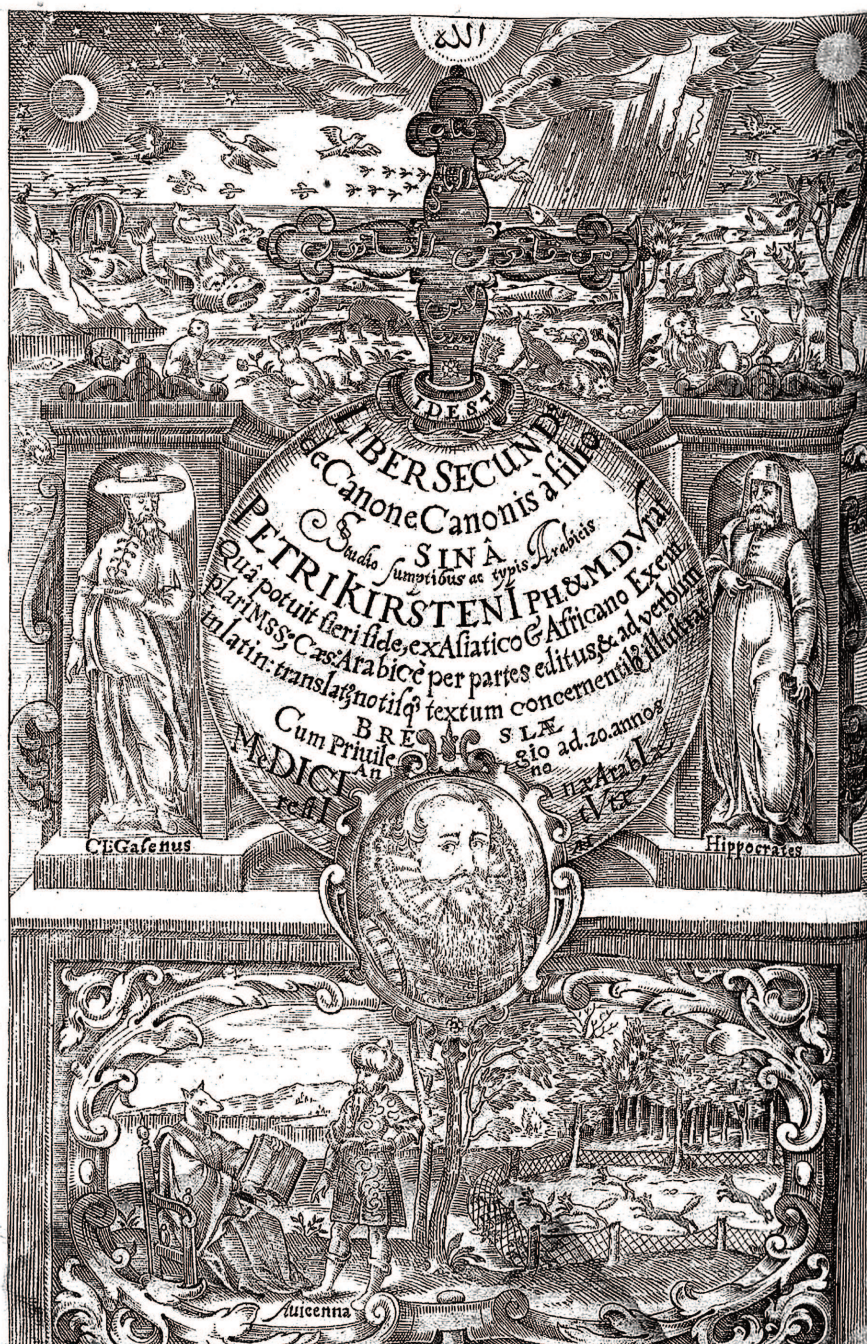 الله
IDEST
LIBER SECUND9
de Canone Canonis à filio
SINÂ
Studio sumptibus ac typis Arabicis
PETRI KIRSTENI PH. & M. D. Vrat
Quâ potuit fieri fide, ex Asiatico & Africano Exem
plari MSS; Cæs: Arabicè per partes editus, & ad verbum
in latin: translat9 notisq textum concernentib9 illustrat9
BRE SLÆ
Cum Privile gio ad. 20. annos
An no
MeDICI næ ArabI
restI tVtæ
Cl: Galenus
Hippocrates
Auicenna